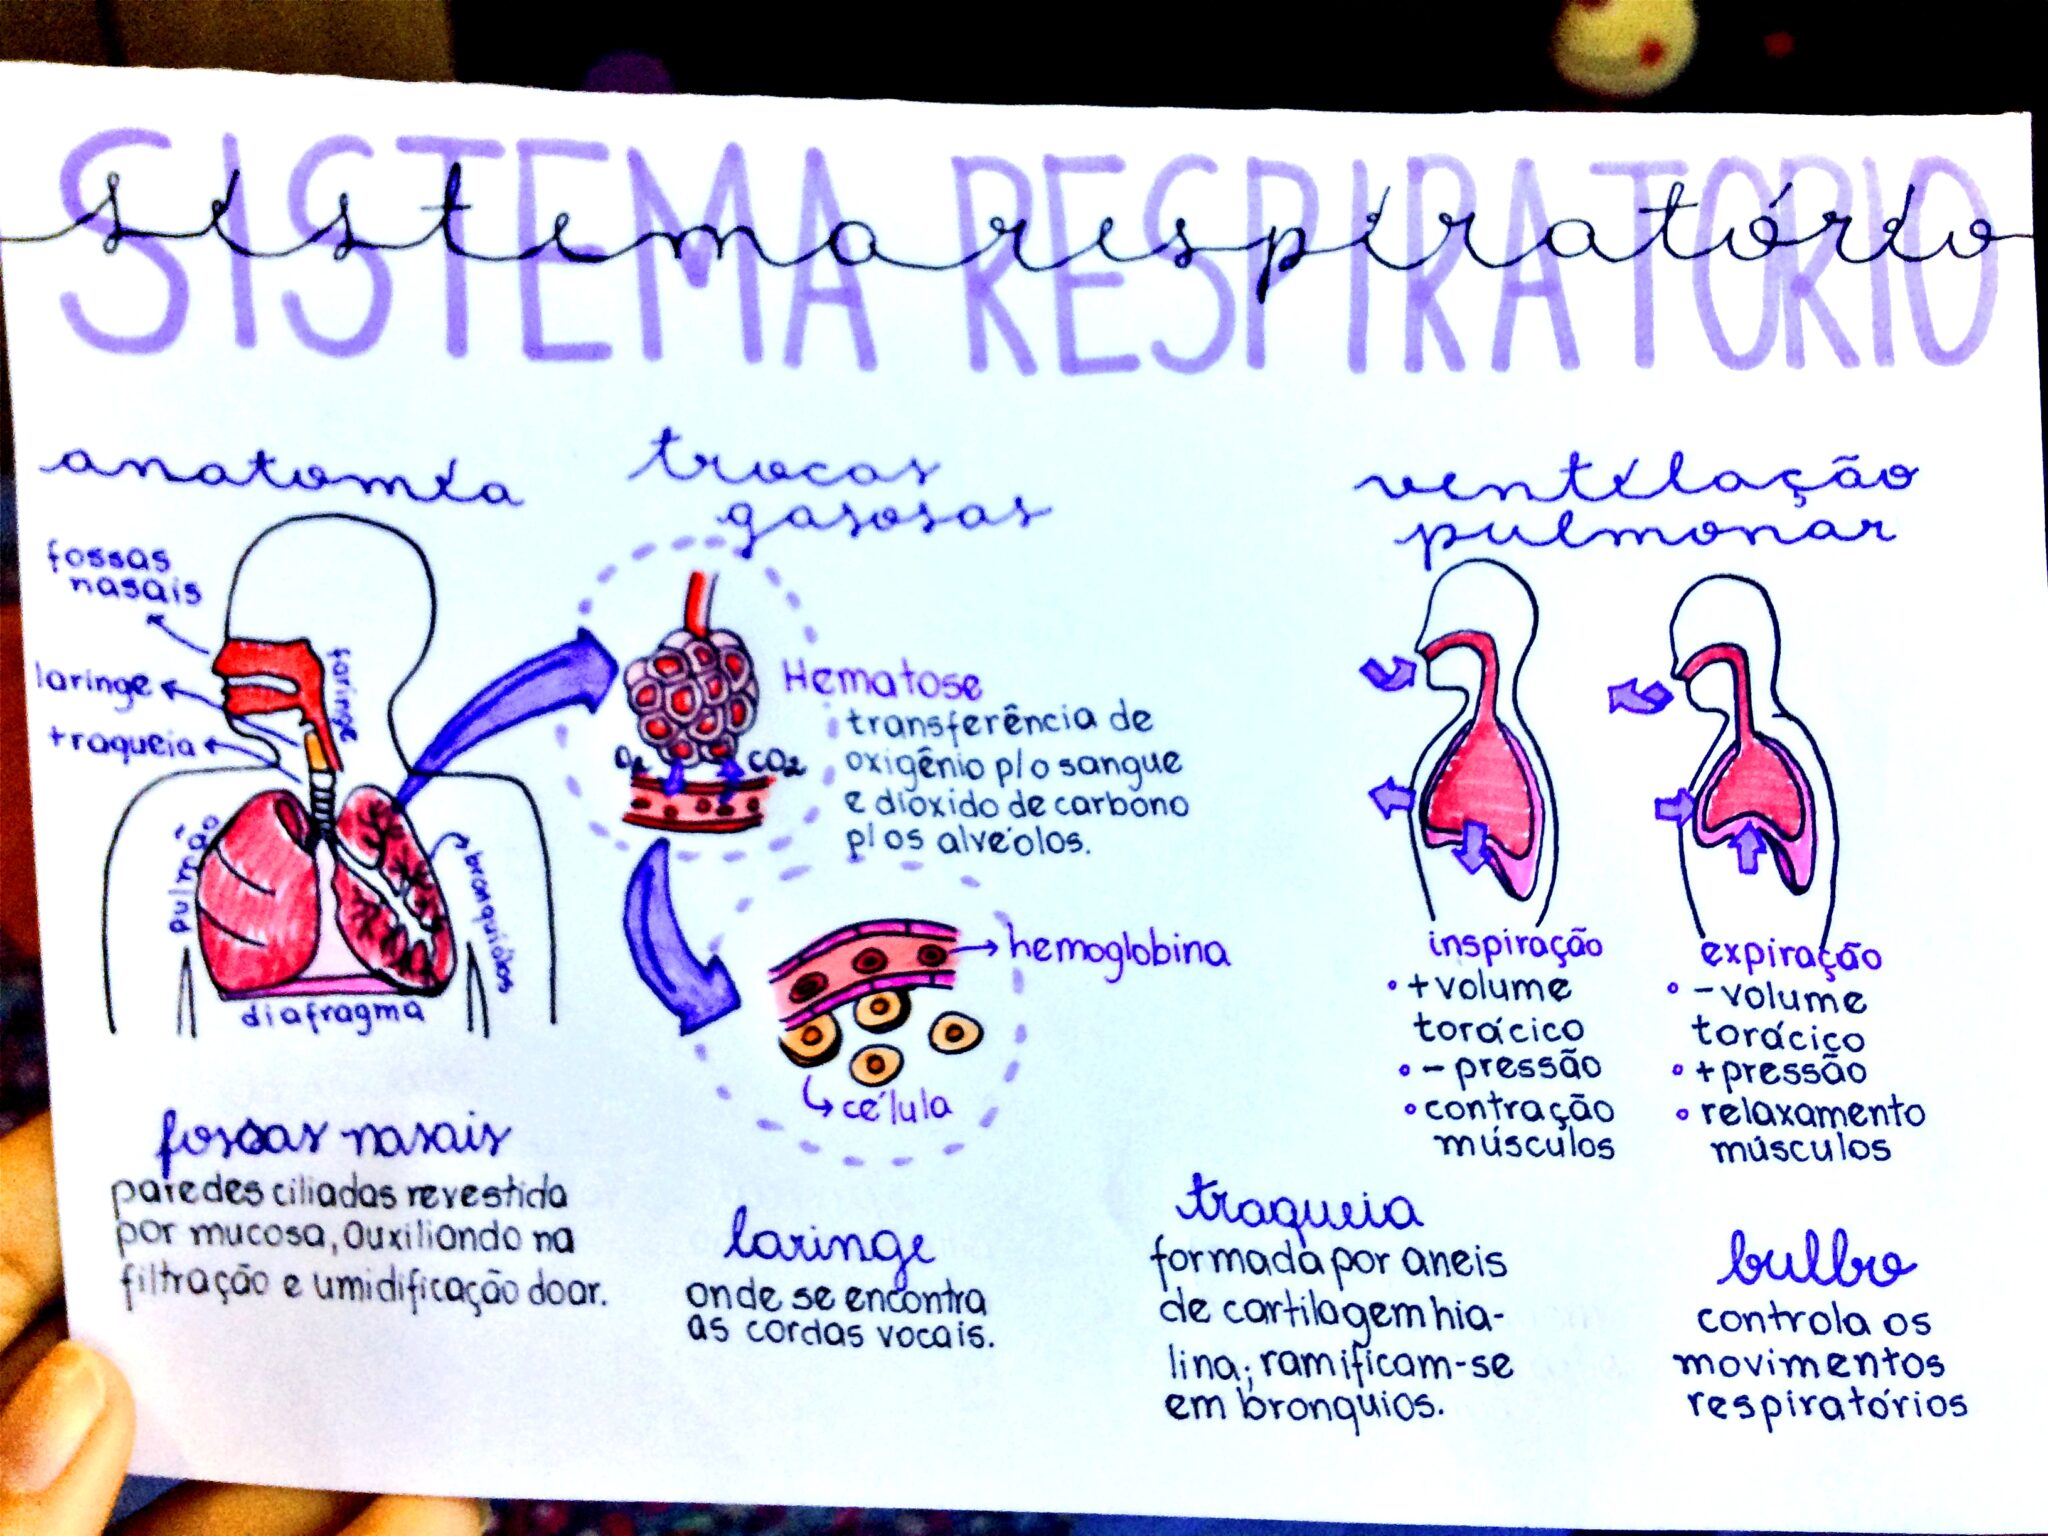 SISTEMA RESPIRATORIO
sistema respiratório
anatomia
fossas
nasais
laringe
traqueia
faringe
pulmão
bronquíolos
diafragma
trocas
gasosas
Hematose
transferência de
oxigênio p/o sangue
e dióxido de carbono
p/os alvéolos.
O2
CO2
hemoglobina
célula
ventilação
pulmonar
inspiração
+volume
torácico
- pressão
contração
músculos
expiração
-volume
torácico
+pressão
relaxamento
músculos
fossas nasais
paredes ciliadas revestida
por mucosa, auxiliando na
filtração e umidificação doar.
laringe
onde se encontra
as cordas vocais.
traqueia
formada por aneis
de cartilagem hia-
lina; ramificam-se
em bronquios.
bulbo
controla os
movimentos
respiratórios